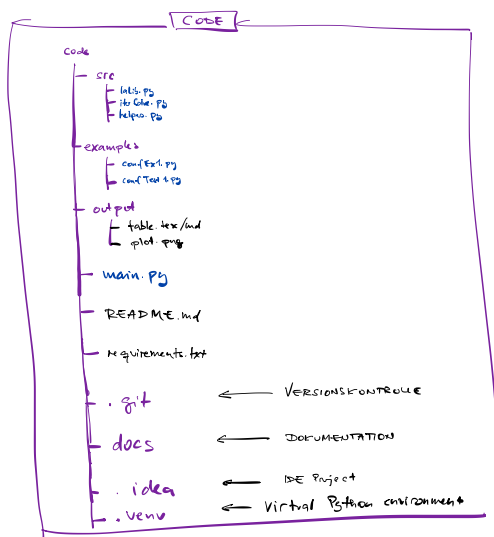 CODE
code
src
helpers.py
examples
confEx1.py
confTest1.py
output
table.tex/md
plot.png
main.py
README.md
requirements.txt
.git ← VERSIONSKONTROLLE
docs ← DOKUMENTATION
.idea ← IDE Project
.venv ← Virtual Python environment